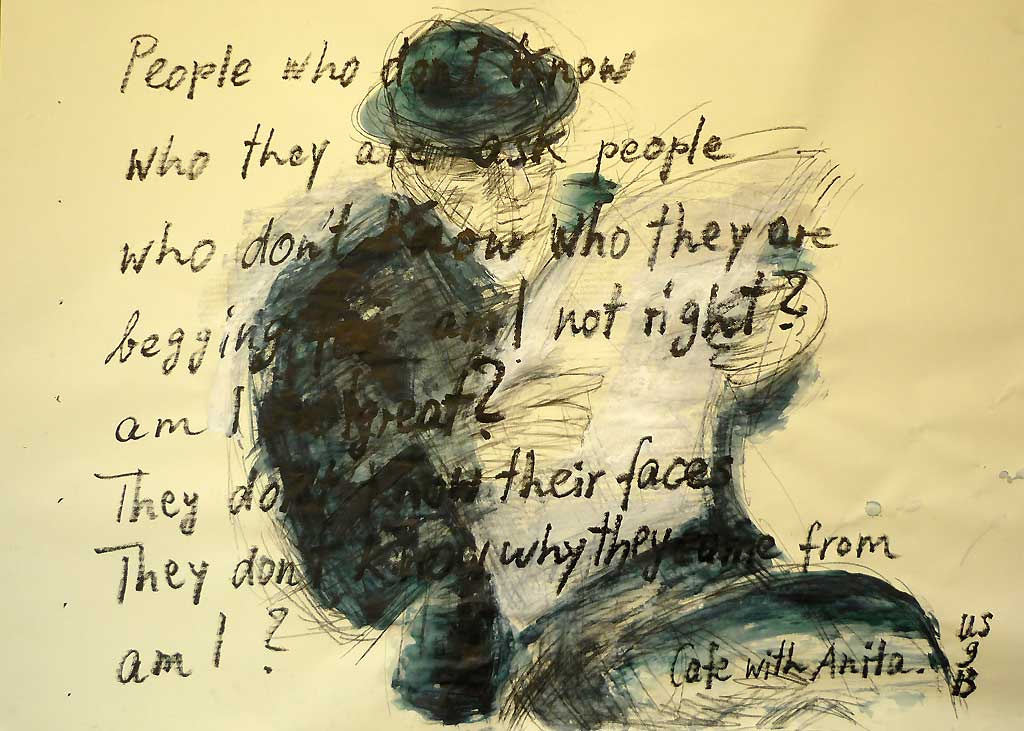 People who don't know
who they are ask people
who don't know who they are
begging am I not right?
am I great?
They don't know their faces
They don't know why they came from
am I ?
Cafe with Anita.
us
9
B